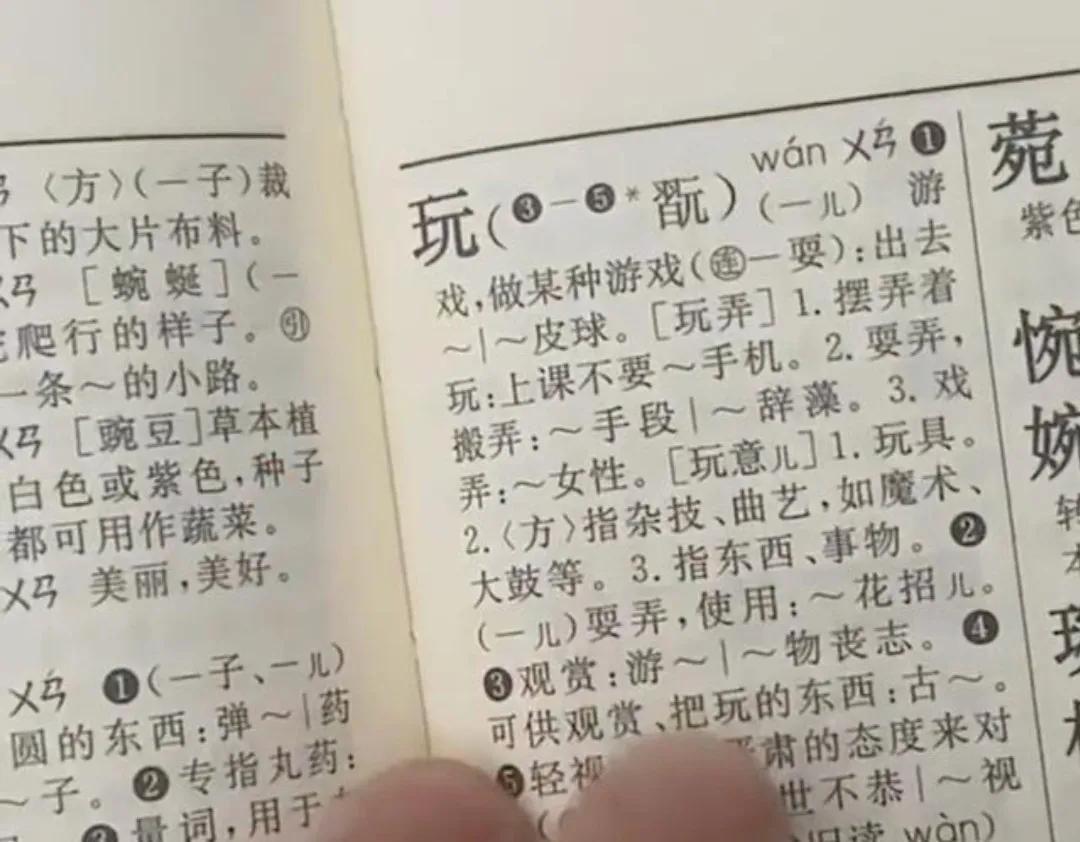 〈方〉(一子)裁
下的大片布料。
ㄨㄢ [蜿蜒](一
爬行的样子。㊁
一条～的小路。
ㄨㄢ [豌豆]草本植
白色或紫色,种子
都可用作蔬菜。
ㄨㄢ 美丽,美好。
ㄨㄢ ❶(一子、一儿)
圆的东西:弹～|药
～子。❷专指丸药:
量词,用于
wán ㄨㄢ ❶
玩(❸－❺*翫)(一儿) 游
戏,做某种游戏(㊣一耍):出去
～|～皮球。[玩弄]1.摆弄着
玩:上课不要～手机。2.耍弄,
搬弄:～手段|～辞藻。3.戏
弄:～女性。[玩意儿]1.玩具。
2.〈方〉指杂技、曲艺,如魔术、
大鼓等。3.指东西、事物。❷
(一儿)耍弄,使用:～花招儿。
❸观赏:游～|～物丧志。❹
可供观赏、把玩的东西:古～。
❺轻视 严肃的态度来对
世不恭|～视
旧读 wàn)
菀
紫色
惋
婉
转